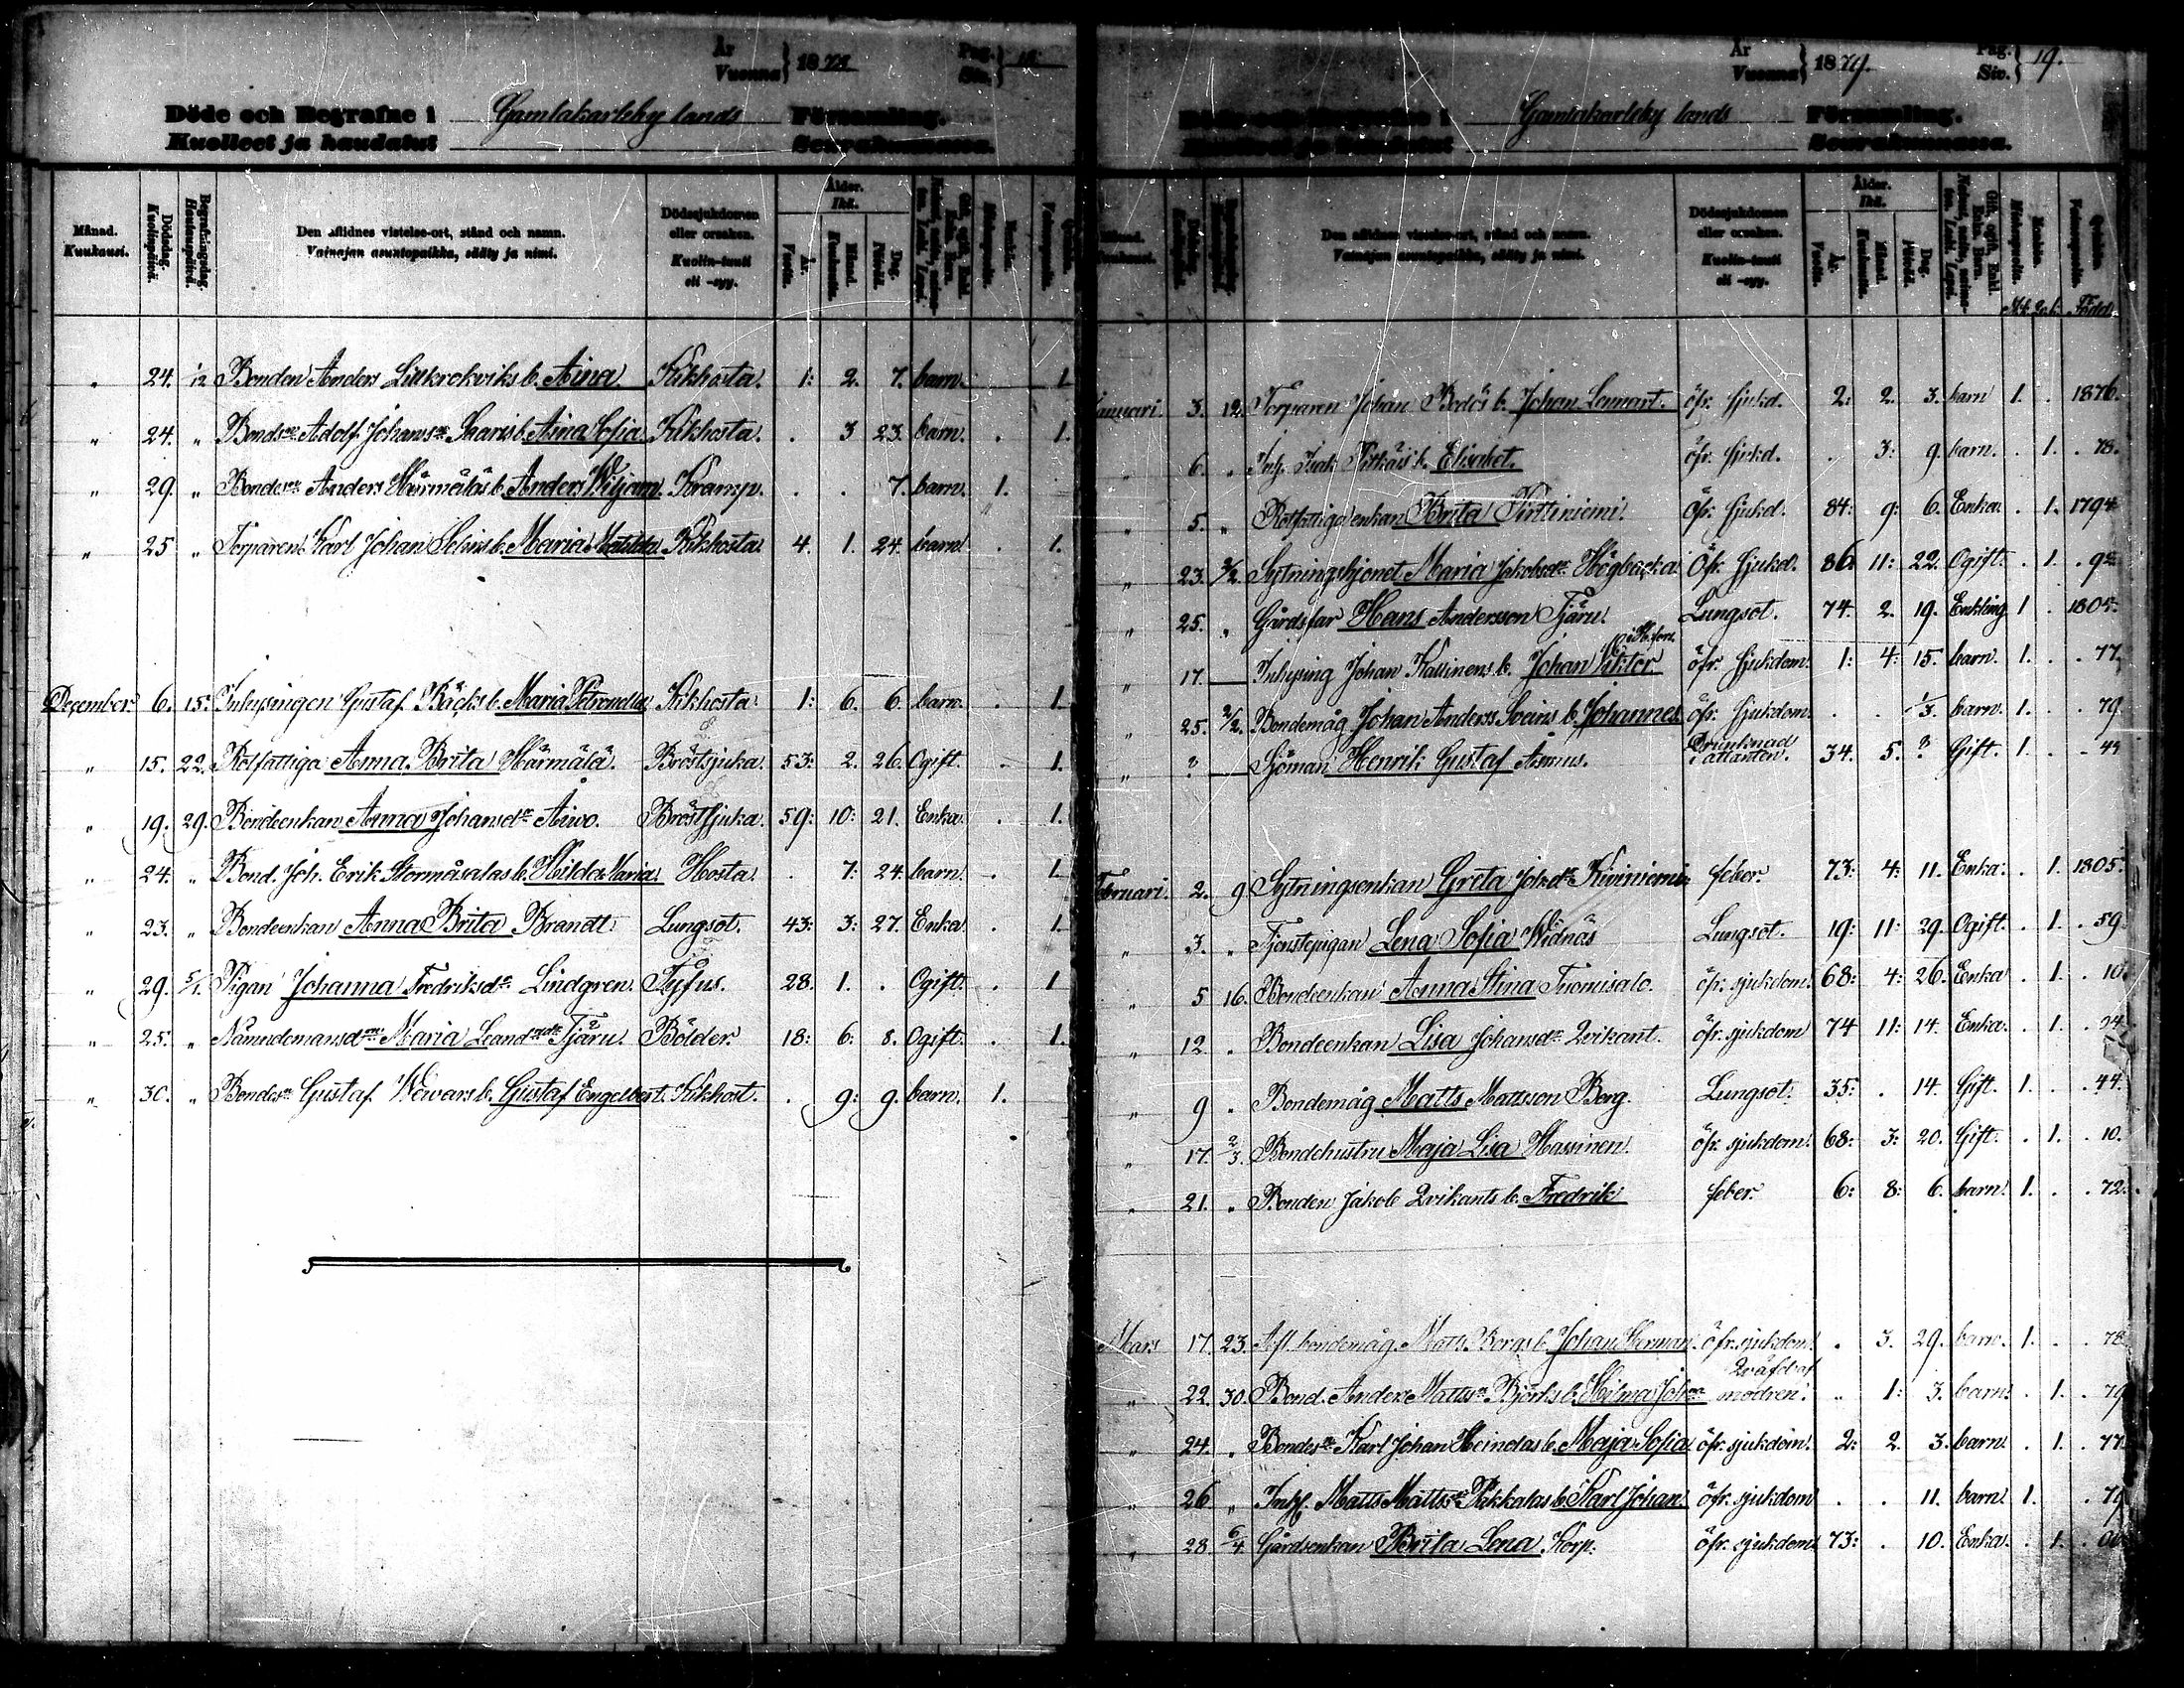 År Vuonna } 1878 Pag. Siv. } 18
Döde och Begrafne i Gamlakarleby lands Församling.
Kuolleet ja haudatut Seurakunnassa.
Månad. Kuukausi. Dödsdag. Kuolinpäivä. Begrafningsdag. Hautauspäivä. Den aflidnes vistelse-ort, stånd och namn. Vainajan asuntopaikka, sääty ja nimi. Dödssjukdomen eller orsaken. Kuolin-tauti eli -syy. Ålder. Ikä. År. Vuotta. Månad. Kuukautta. Dag. Päivää. Mankön. Miehenpuolia. Qvinkön. Vaimonpuolia.
" 24. 12 Bonden Anders Lillkrokviks b. Aina. Kikhosta. 1: 2. 7. barn. 1.
" 24. " Bondsn Adolf Johanssn Saaris b. Aina Sofia Kikhosta. . 3 23. barn. . 1.
" 29. " Bondesn Anders Härmäläs b. Anders Wiljam. Kramp. . . 7. barn. 1.
" 25 " Torparen Karl Johan Selins b. Maria Matilda Kikhosta 4. 1. 24. barn . 1.
December. 6. 15. Inhysingen Gustaf Bäcks b. Maria Petronella Kikhosta. 1: 6. 6. barn. . 1.
" 15. 22. Rotfattiga Anna Brita Härmälä. Bröstsjuka. 53: 2. 26. Ogift. . 1.
" 19. 29. Bondeenkan Anna Johansdr Aivo. Bröstsjuka. 59: 10: 21. Enka. . 1.
" 24. " Bond. Joh. Erik Stormåsalas b. Hilda Maria. Hosta. . 7: 24. barn. . 1.
" 23. " Bondeenkan Anna Brita Brandt Lungsot. 43: 3: 27. Enka . 1.
" 29. 5/1. Pigan Johanna Fredriksdr Lindgren. Tyfus. 28. 1. . Ogift. . 1
" 25. " Nämndemansd. Maria Leandersdr Tjäru. Bölder 18: 6: 8. Ogift. . 1.
" 30. " Bondesn Gustaf Wervars b. Gustaf Engelbert. Kikhost. . 9: 9. barn. 1.
År Vuonna } 1879. Pag. Siv. } 19.
Döde och Begrafne i Gamlakarleby lands Församling.
Kuolleet ja haudatut Seurakunnassa.
Månad. Kuukausi. Den aflidnes vistelse-ort, stånd och namn. Vainajan asuntopaikka, sääty ja nimi. Dödssjukdomen eller orsaken. Kuolin-tauti eli -syy. Ålder. Ikä. År. Vuotta. Månad. Kuukautta. Dag. Päivää. Mankön. Miehenpuolia. Qvinkön. Vaimonpuolia. Född.
Januari. 3. 12. Torparen Johan Bodös b. Johan Lennart. öfr. sjukd. 2: 2. 3. barn 1. . 1876.
" 6. " Inh. Isak Pitkäis b. Elisabet. öfr. sjukd. . 3: 9. barn. . 1. . 78.
" 5. " Rotfattigaenkan Brita Pirttiniemi. Öfr. sjukd. 84: 9: 6. Enka. . 1. 1794
" 23. 2/2. Sytningshjonet Maria Jakobsdr Högbacka Öfr. sjukd. 86 11: 22. Ogift. . 1. . 92
" 25. " Gårdsfar Hans Andersson Tjäru. Lungsot. 74. 2. 19. Enkling 1 . 1805.
" 17. — Inhysing Johan Kassinens b. Johan Viktor öfr. sjukdom. 1: 4: 15. barn. 1. . . 77.
" 25. 2/2. Bondemåg Johan Anderss Soeins b. Johannes öfr. sjukdom. . . 1/3. barn. 1. . . 79.
" ? — Sjöman Henrik Gustaf Asmus. Drunknad i atlanten. 34. 5. ? Gift. 1. . . 44
Februari. 2. 9 Sytningsenkan Greta Johdr Kiviniemi feber. 73: 4: 11. Enka. . 1. 1805.
" 3. " Tjenstepigan Lena Sofia Widnäs Lungsot. 19: 11: 29. Ogift. . 1. . 59.
" 5 16. Bondeenkan Anna Stina Tuomisalo. öfr. sjukdom. 68: 4: 26. Enka . 1. . 10.
" 12. " Bondeenkan Lisa Johansdr Qvikant. öfr. sjukdom 74 11: 14. Enka. . 1. . 04
" 9 " Bondemåg Matts Mattsson Borg. Lungsot. 35: . 14. Gift. 1. . . 44.
" 17. 2/3. Bondehustru Maja Lisa Hassinen. öfr. sjukdom. 68: 3: 20. Gift. . 1. . 10.
" 21. " Bonden Jakob Qvikants b. Fredrik feber. 6: 8: 6. barn. 1. . . 72.
Mars 17. 23. Afl. bondemåg Matts Borgs b. Johan Herman. öfr. sjukdom. . 3. 29. barn. 1. . . 78
" 22. 30. Bond. Anders Mattssn Björks b. Hilma Joh. Qväfd af modren. " 1: 3. barn. . 1. . 79
" 24. " Bondesn Karl Johan Heindas b. Maja Sofia öfr. sjukdom. 2: 2. 3. barn. . 1. . 77.
" 26 " Inh. Matts Mattssn Pakkalas b. Karl Johan öfr. sjukdom . . 11. barn. 1. . 79
" 28. 6/4. Gårdsenkan Brita Lena Korp. öfr. sjukdom. 73: . 10. Enka. . 1. . 06